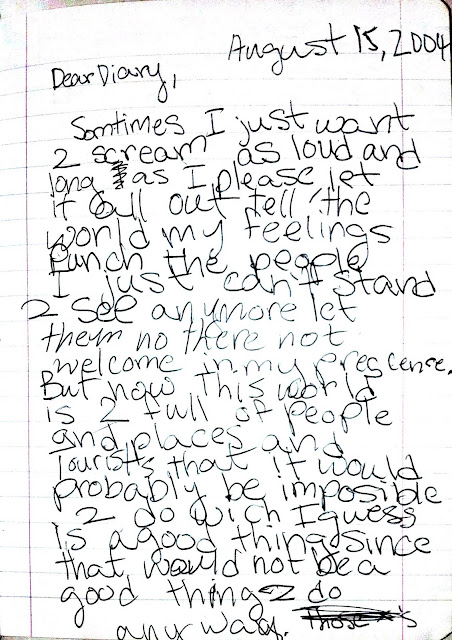 August 15, 2004
Dear Diary,
Somtimes I just want
2 scream as loud and
long as I please let
it all out tell the
world my feelings
Punch the people
I just can't stand
2 see anymore let
them no there not
welcome in my prescence.
But now this world
is 2 full of people
and places and
tourists that it would
probably be imposible
2 do wich I guess
is a good thing since
that would not be a
good thing 2 do
any way.